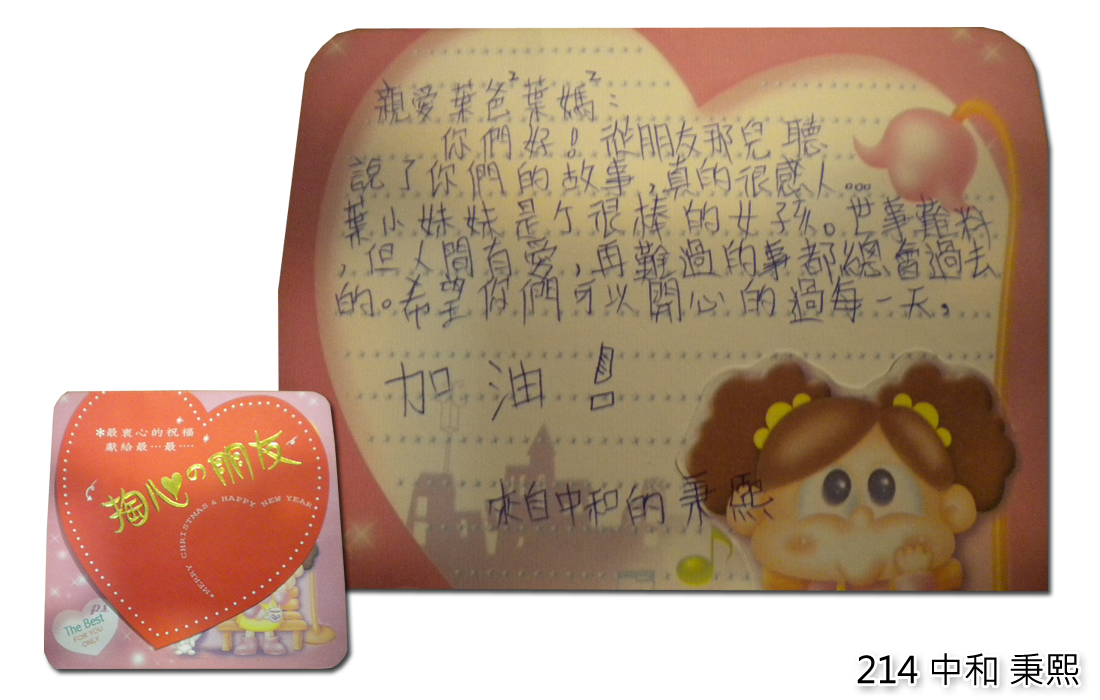 親愛葉爸²葉媽²：
你們好！從朋友那兒聽
說了你們的故事，真的很感人...
葉小妹妹是个很棒的女孩。世事難料
，但人間有愛，再難過的事都總會過去
的。希望你們可以開心的過每一天，
加油！
來自中和的 秉熙
*最衷心的祝福
獻給最…最……
掏心の朋友
*MERRY CHRISTMAS & HAPPY NEW YEAR
P.S
The Best
FOR YOU
ONLY
214 中和 秉熙